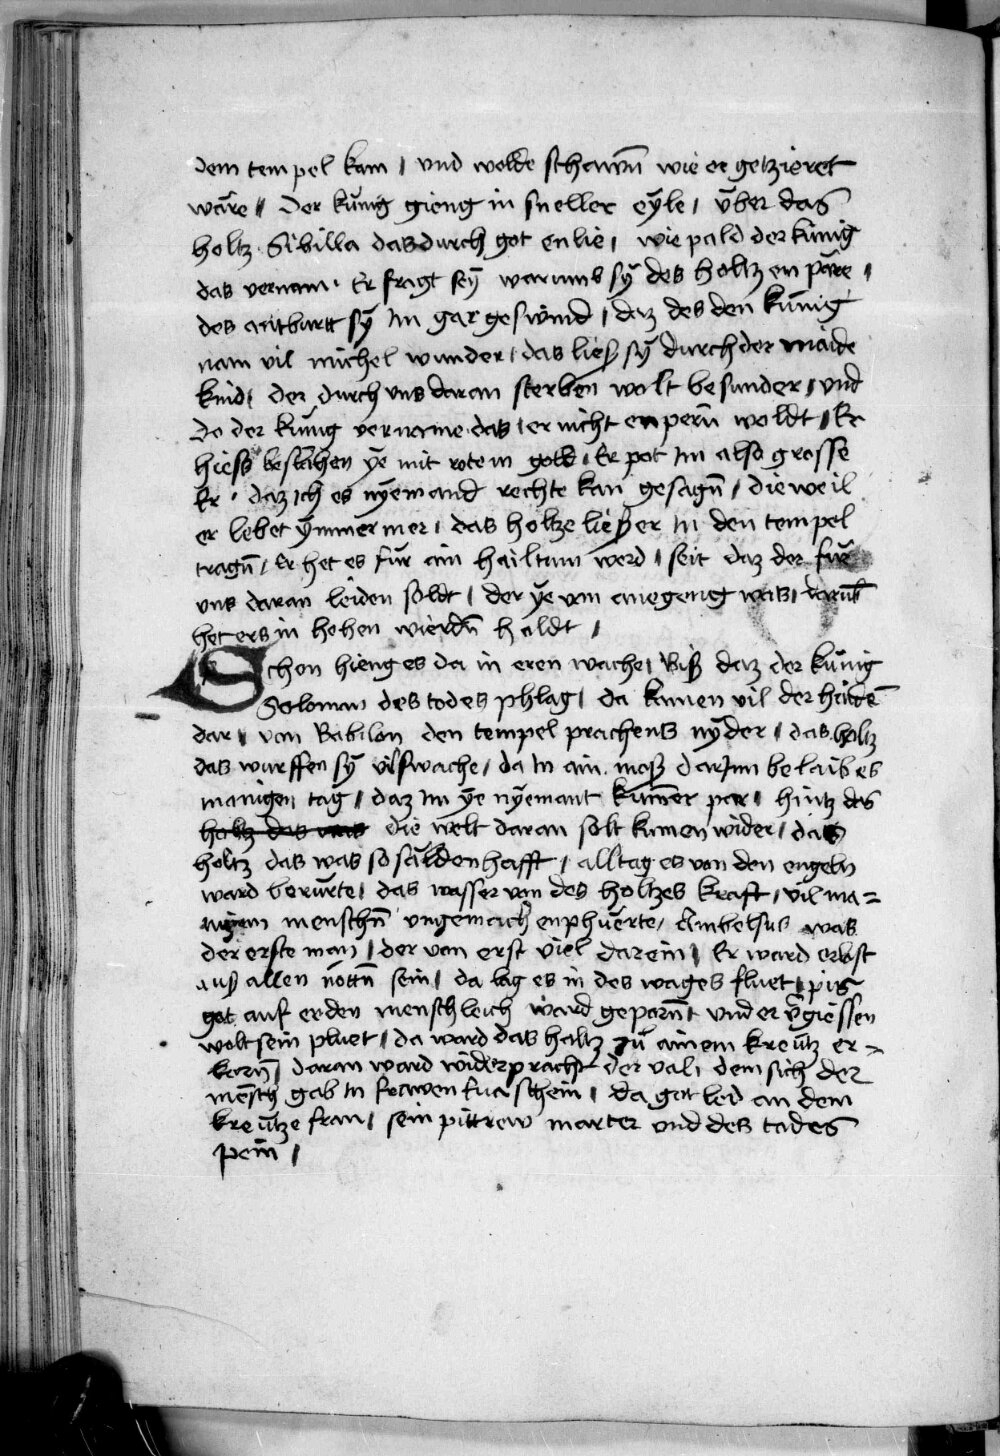 dem tempel kam / vnd wolde schawm̄ wie er getzieret
wäre // Der kűnig gieng in sneller eÿle / vber das
holtz Sibilla das durch got enlie / wie pald der kűnig
das vernam · Er fragt seÿ warumb sÿ des holtz enpäre /
des antburtt sÿ Im gar geswind / daz des den kűnig
nam vil michel wunder / das ließ sÿ durch der maide
kind / der durch vns daran sterben wolt besunder / vnd
do der kűnig vername das / er nicht enpern̄ woldt / Er
hiess beslahen ye mit rotem gold / Er pot Im also grosse
Er · daz ich es nÿemand rechte kan gesagn̄ / die weil
er lebet ÿmmermer / das holtze ließ er In den tempel
tragn̄ / Er het es fűr ain hailtum werd / seit daz der fűr
vns daran leiden soldt / der ÿe von anegeng was / darūb
het ers in hohen wierdn̄ haldt /
Schon hieng es da in eren wache / Biß daz der kűnig
Soloman des todes phlag / da kamen vil der haidē
dar / von Babilon den tempel prachens nÿder / das holtz
das wurffen sÿ vil swache / da In ain moß darInn belaib es
manigen tag / daz Im ÿe nÿemant kumēr par / hintz das
holtz das was die welt daran solt kumen wider / das
holtz das was so säldenhafft / alltag es von den engeln
ward berűrte / das wasser von des holtzes kraft / vil ma=
nigem menschn̄ vngemach enphűerte / was
der erste man / der von erst viel darein / Er ward erlost
auß allen nöttn̄ sein / da lag es in des wages fluet / pis
got auf erden menschleich ward geporn̄ / vnd er v̄giessen
wolt sein pluet / da ward das holtz zű ainem kreűtz er=
korn̄ / daran ward widerpracht der val / dem sich der
mēsch gab In frawen schein / da got leid an dem
kreűtze fran / sein pittrew marter vnd des todes
pein /